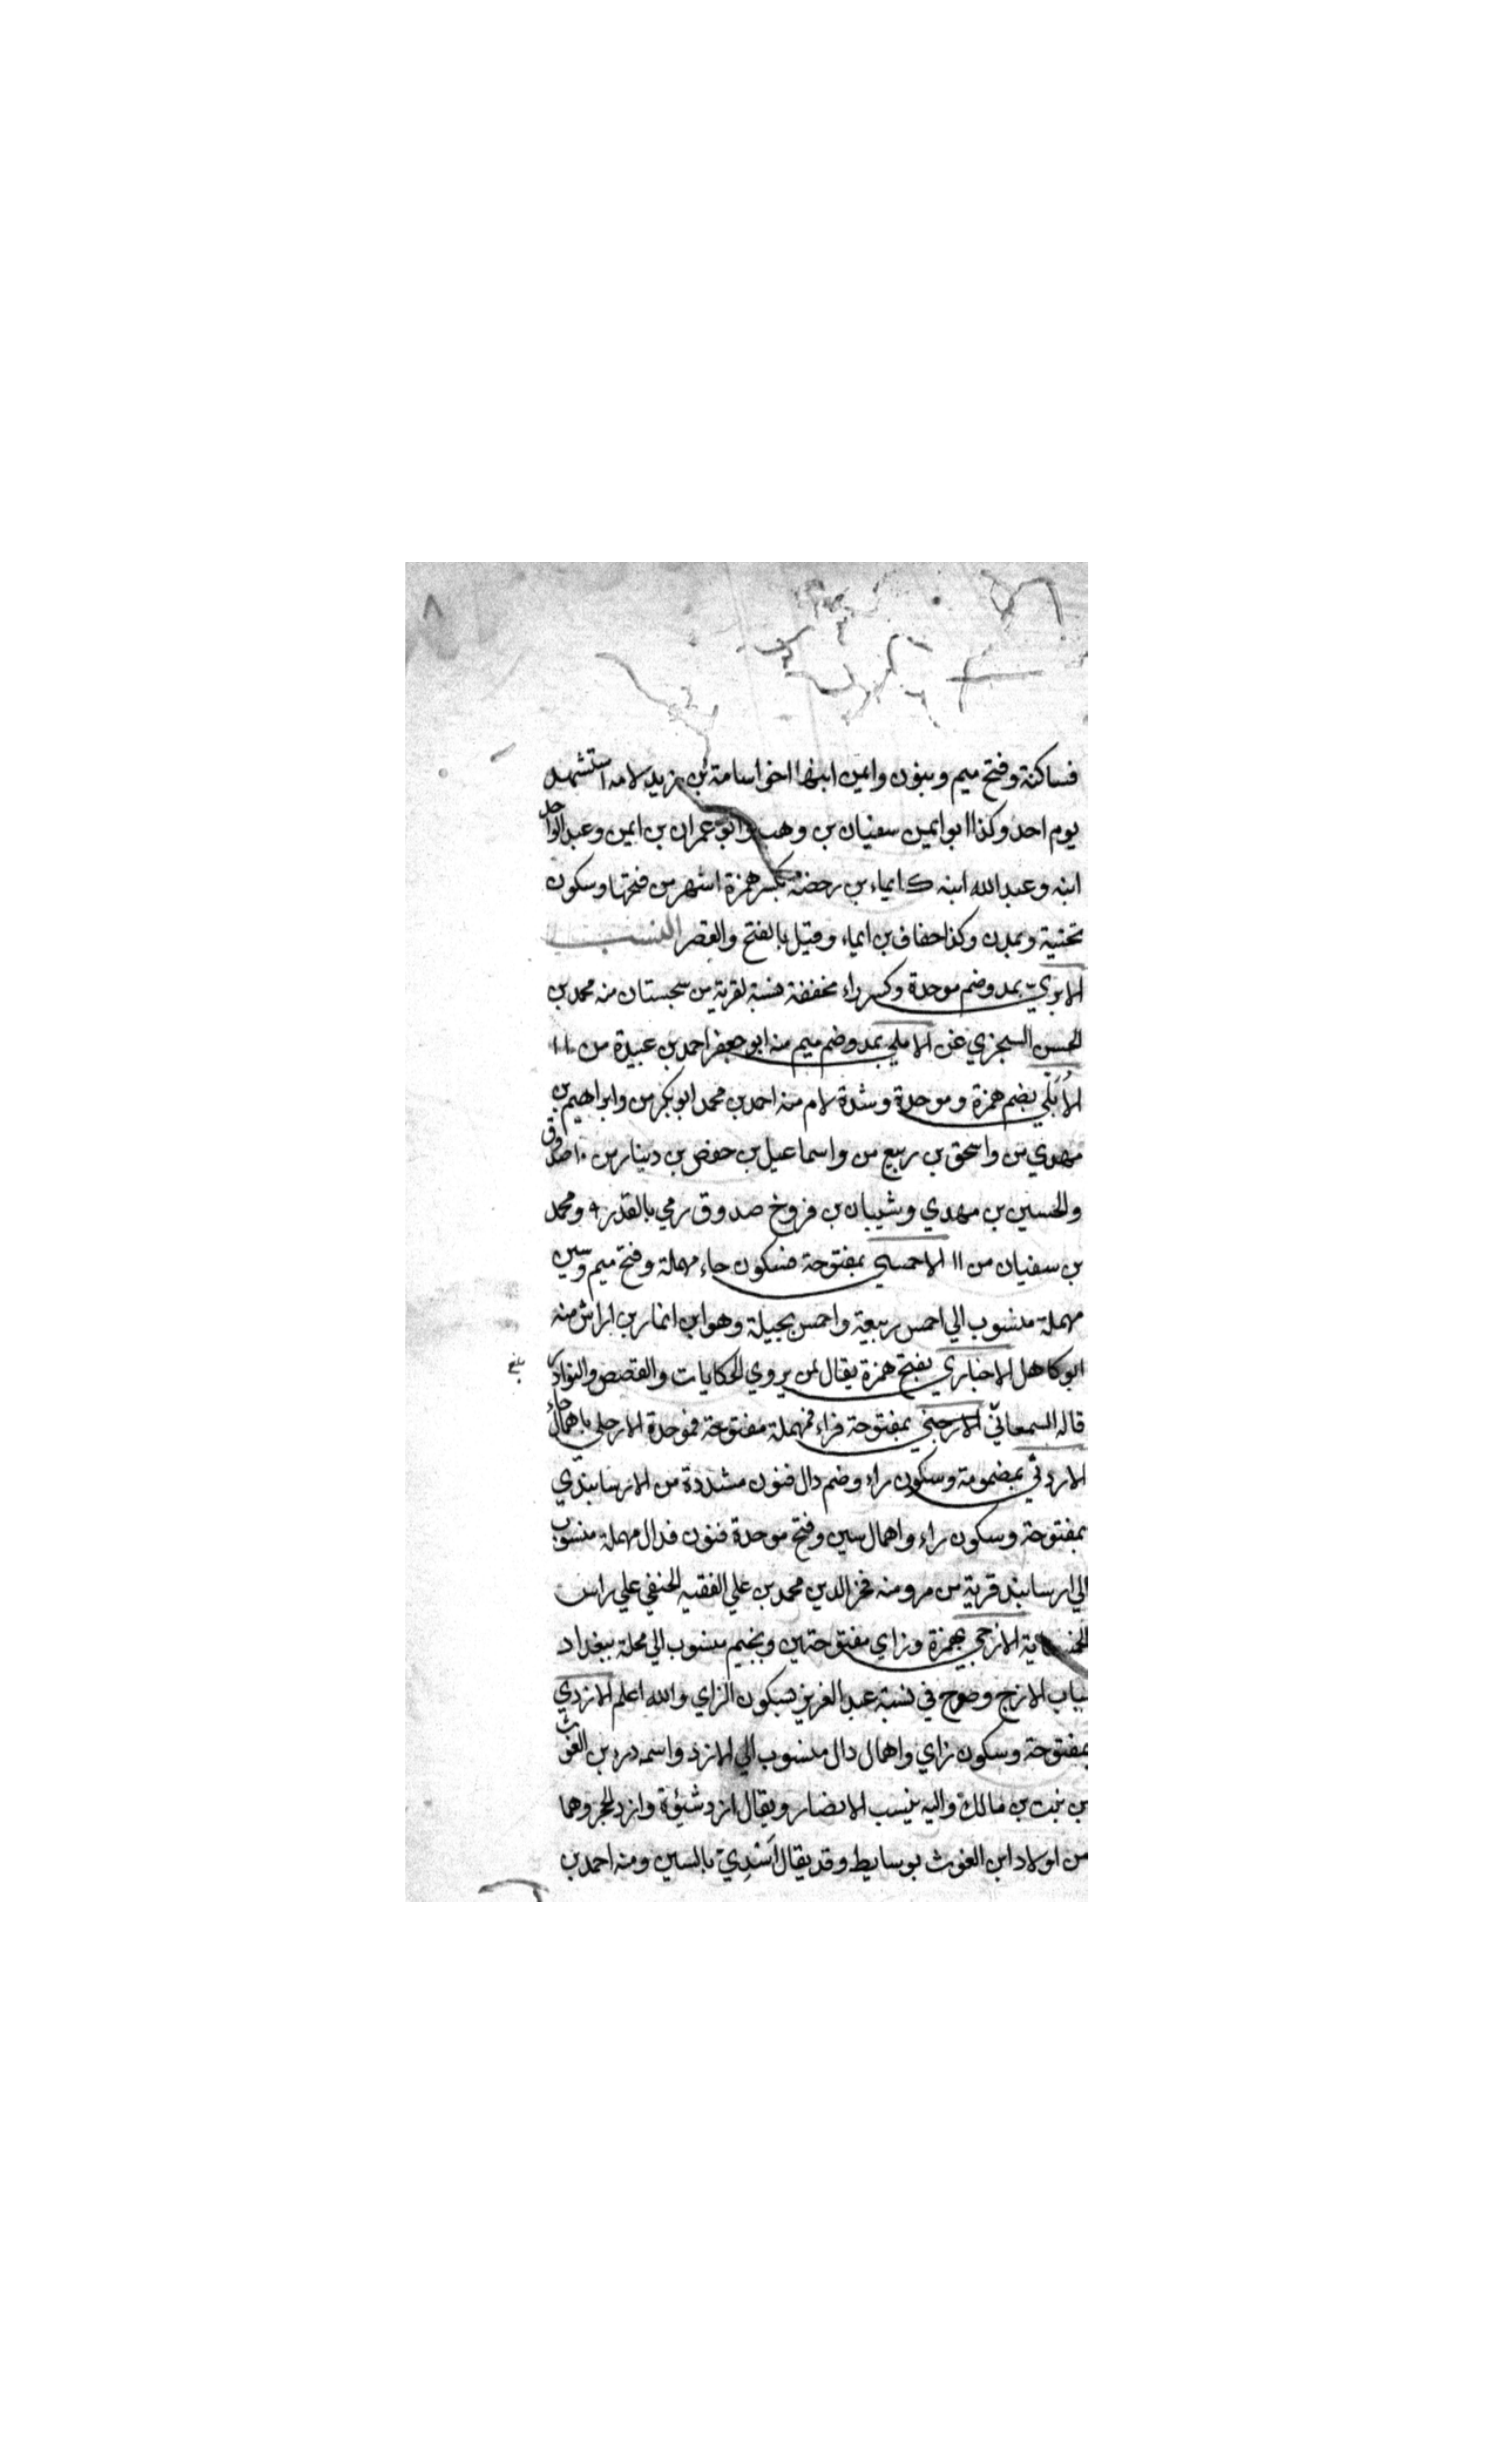 ٨
فساكنة وفتح ميم وبنون وايمن ابنها اخو اسامة بن زيد لامه استشهد
يوم احد وكذا ابو ايمن سفيان بن وهب وابو عمران بن ايمن وعبد الواحد
ابنه وعبد الله ابنه ك ايماء بن رحضة بكسر همزة اشهر من فتحها وسكون
تحتية وبمدن وكذا خفاف بن ايماء وقيل بالفتح والقصر النسب
الابري بمد وضم موحدة وكسر راء مخففة نسبة لقرية من سجستان منه محمد بن
الحسن السجزي غن الاملي بمد وضم ميم منه ابو جعفر احمد بن عبيدة من ١١
الأبلي بضم همزة وموحدة وشدة لام منه احمد بن محمد ابو بكر من وابراهيم بن
مهدي من واسحق بن ربيع من واسماعيل بن حفص بن دينار من ١٠ صدوق
والحسين بن مهدي وشيبان بن فروخ صدوق رمي بالقدر ٩ ومحمد
بن سفيان من ١١ الاحمسي بمفتوحة فسكون حاء مهملة وفتح ميم وسين
مهملة منسوب الي احمس ربيعة واحمس بجيلة وهو ابن انمار بن اراش منه
ابو كاهل الاخباري بفتح همزة يقال لمن يروي الحكايات والقصص والنوادر
قاله السمعاني الارحبي بمفتوحة فراء فمهملة مفتوحة فموحدة الارحلي باهمال حاء
الاردني بمضمومة وسكون راء وضم دال فنون مشددة من الارسابندي
بمفتوحة وسكون راء واهمال سين وفتح موحدة فنون فدال مهملة منسوب
الي ارسابند قرية من مرو منه فخر الدين محمد بن علي الفقيه الحنفي علي راس
الازجي بهمزة وزاي مفتوحتين وبجيم منسوب الي محلة ببغداد
بباب الازج وصحح في نسبة عبد العزيز بسكون الزاي والله اعلم الازدي
بمفتوحة وسكون زاي واهمال دال منسوب الي الازد واسمه درء بن الغوث
بن نبت بن مالك واليه ينسب الانصار ويقال ازد شنوءة وازد الحجر وهما
من اولاد ابن الغوث بوسايط وقد يقال اَسْدِيّ بالسين ومنه احمد بن